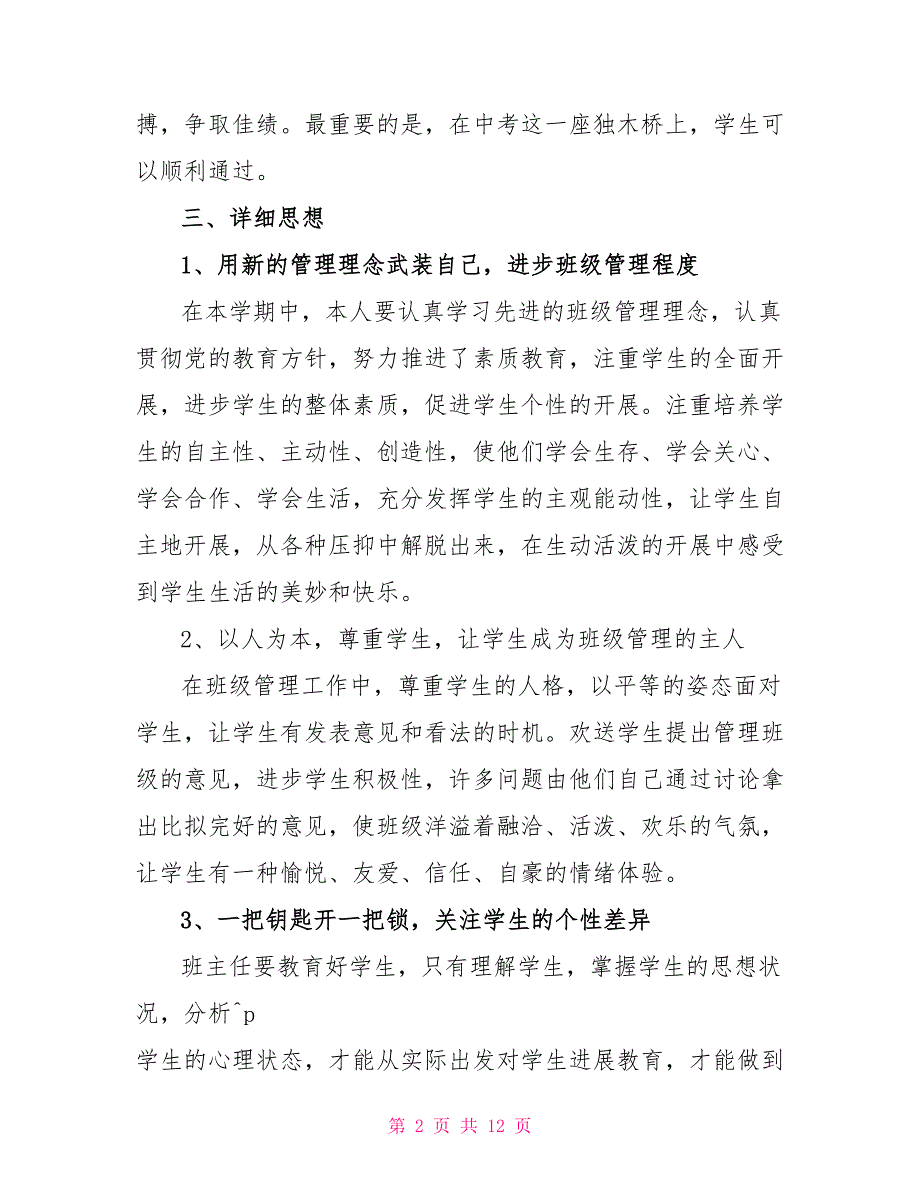 搏，争取佳绩。最重要的是，在中考这一座独木桥上，学生可
以顺利通过。
三、详细思想
1、用新的管理理念武装自己，进步班级管理程度
在本学期中，本人要认真学习先进的班级管理理念，认真
贯彻党的教育方针，努力推进了素质教育，注重学生的全面开
展，进步学生的整体素质，促进学生个性的开展。注重培养学
生的自主性、主动性、创造性，使他们学会生存、学会关心、
学会合作、学会生活，充分发挥学生的主观能动性，让学生自
主地开展，从各种压抑中解脱出来，在生动活泼的开展中感受
到学生生活的美妙和快乐。
2、以人为本，尊重学生，让学生成为班级管理的主人
在班级管理工作中，尊重学生的人格，以平等的姿态面对
学生，让学生有发表意见和看法的时机。欢送学生提出管理班
级的意见，进步学生积极性，许多问题由他们自己通过讨论拿
出比拟完好的意见，使班级洋溢着融洽、活泼、欢乐的气氛，
让学生有一种愉悦、友爱、信任、自豪的情绪体验。
3、一把钥匙开一把锁，关注学生的个性差异
班主任要教育好学生，只有理解学生，掌握学生的思想状
况，分析^p
学生的心理状态，才能从实际出发对学生进展教育，才能做到
第 2 页 共 12 页